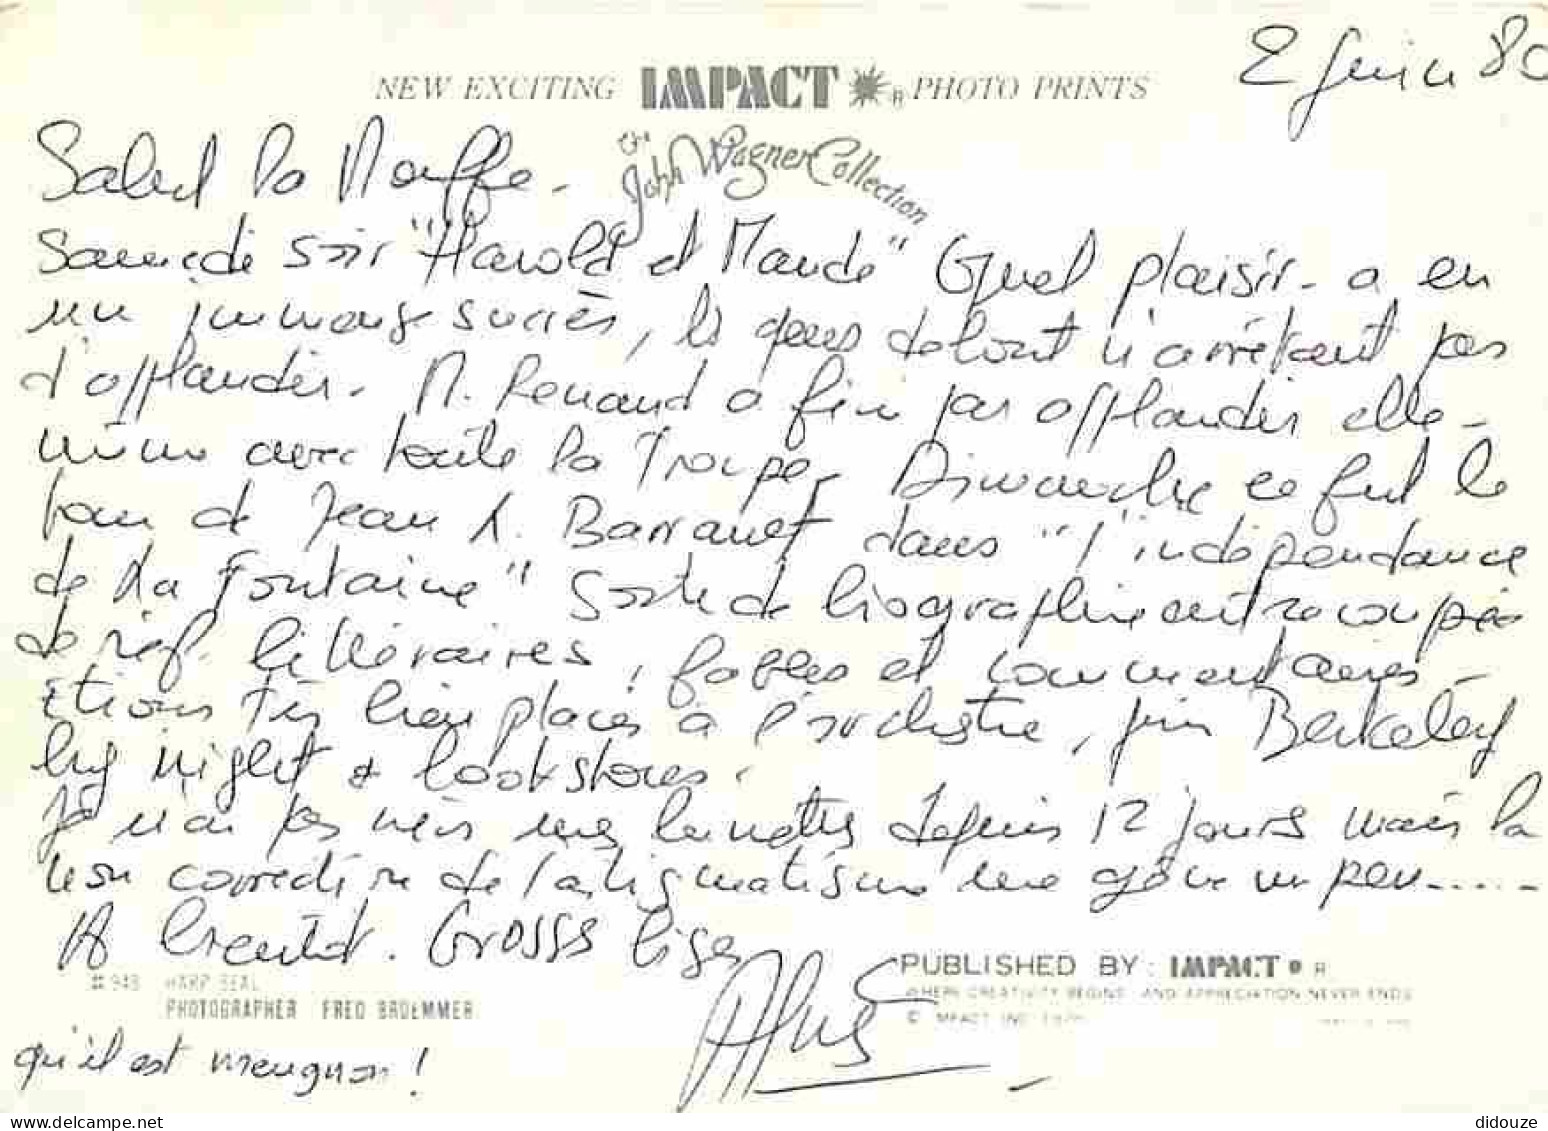 2 juin 80
NEW EXCITING IMPACT R PHOTO PRINTS
the John Wagner Collection
Salut la Mouffe -
Samedi soir "Harold et Maude" Quel plaisir - a eu
un immense succès, les gens debout n'arrêtant pas
d'applaudir. M. Renaud a fini par applaudir elle-
même avec toute la Troupe. Dimanche ce fut le
tour de Jean L. Barrault dans "l'indépendance
de La Fontaine" Sorte de biographie entrecoupée
de réf. littéraires, fables et commentaires -
étions très bien placés à l'orchestre, puis Berkeley
by night & bookstores.
Je n'ai pas mis mes lunettes depuis 12 jours mais la
non correction de l'astigmatisme me gêne un peu......
A bientôt. Grosses bises
#943 HARP SEAL
PHOTOGRAPHER FRED BRUEMMER
PUBLISHED BY: IMPACT R
WHERE CREATIVITY BEGINS AND APPRECIATION NEVER ENDS
© IMPACT INC.
qu'il est meugnon !
didouze
delcampe.net